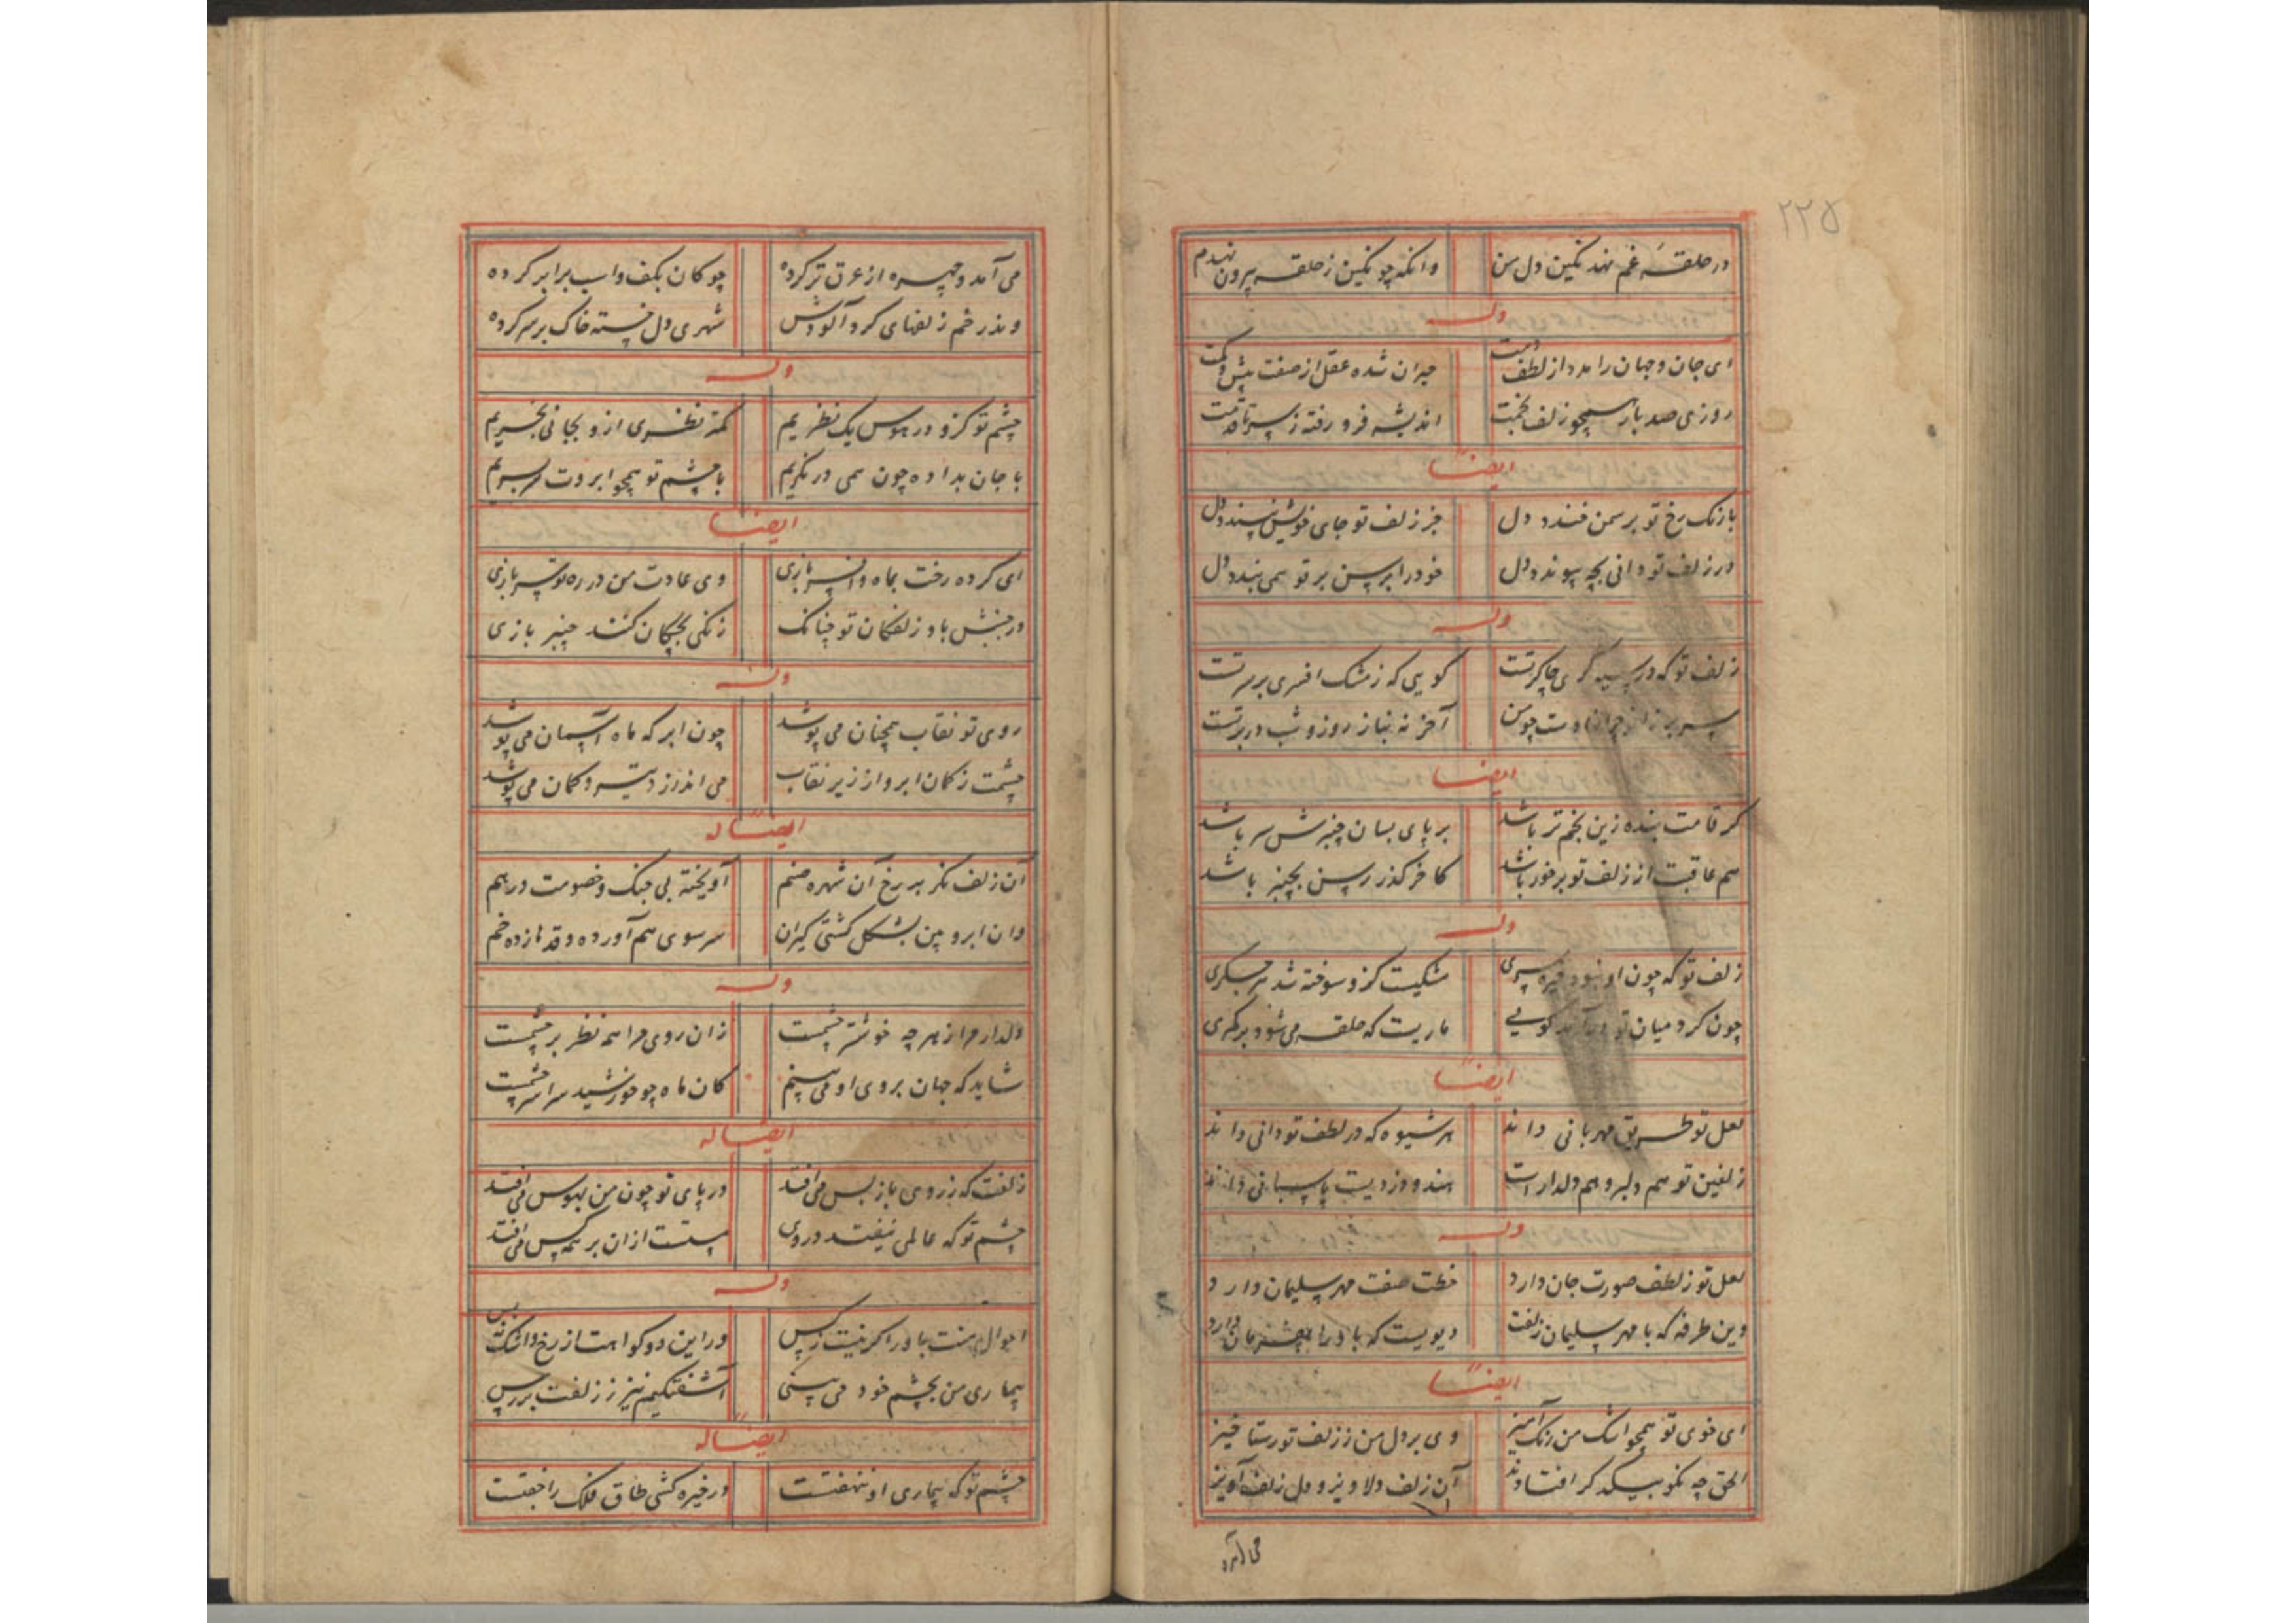 ۲۲۵
در حلقهٔ غم نهد نگین دل من وانگه چو نگین ز حلقه بیرون نهدم
وله
ای جان و جهان را مدد از لطف دمت حیران شده عقل از صفت بیش و کمت
روزی صد بار همچو زلف بخمت اندیشه فرو رفته ز سر تا قدمت
ایضاً
با رنک رخ تو بر سمن خندد دل جز زلف تو جای خویش نپسندد دل
در زلف تو دانی بچه پیوندد دل خود را برسن بر تو همی بندد دل
وله
زلف تو که در سیه کری چاکر تست کویی که ز مشک افسری بر سر تست
چون من آخر نه بناز روز و شب در بر تست
ایضاً
کر قامت بنده زین بخم تر باشد بر پای بسان چنبرش سر باشد
هم عاقبت از زلف تو برخور باشد کاخر کذر رسن بچنبر باشد
وله
زلف تو که چون او نبود خیره سری مشکیست کزو سوخته شد هر جکری
چون کرد میان تو درآید کویی ماریست که حلقه می‌شود بر کمری
ایضاً
لعل تو طریق مهربانی داند هر شیوه که در لطف تو دانی داند
زلفین تو هم دلبر و هم دلدار است هندو دزدیست پاسبانی داند
وله
لعل تو ز لطف صورت جان دارد خطت صفت مهر سلیمان دارد
وین طرفه که با مهر سلیمان زلفت دیویست که باد را بفرمان دارد
ایضاً
ای خوی تو همچو اشک من رنک آمیز وی بر دل من ز زلف تو رستاخیز
الحق چه نکو بیکدکر افتادند آن زلف دلاویز و دل زلف آویز
می آمد
می آمد و چهره از عرق تر کرده چوکان بکف و اسب برابر کرده
وندر خم زلفهای کرد آلودش شهری دل خسته خاک بر سر کرده
وله
چشم تو کزو در هوس یک نظریم کمتر نظری ازو بجانی بخریم
با جان بداده چون همی در نکریم با چشم تو همچو ابروت سر بسریم
ایضاً
ای کرده رخت بماه و انسر بازی وی عادت من در ره تو سر بازی
در جنبش باد زلفکان تو چنانک زنکی بچکان کنند چنبر بازی
وله
روی تو نقاب همچنان می پوشد چون ابر که ماه آسمان می پوشد
چشمت ز کمان ابرو از زیر نقاب می اندازد تیر و کمان می پوشد
ایضاً له
آن زلف نکر بر رخ آن شهره صنم آویخته بی جنک و خصومت در هم
وان ابرو بین بشکل کشتی کیران سر سوی هم آورده و قدها زده خم
وله
دلدار مرا از هر چه خوشتر چشمست زان روی مرا همه نظر بر چشمست
شاید که جهان بروی او می بینم کان ماه چو خورشید سراسر چشمست
ایضاً له
زلفت که ز روی باز پس می افتد در پای تو چون من بهوس می افتد
چشم تو که عالمی نیفتد در وی مستست ازان بر همه کس می افتد
وله
احوال منت باور اکر نیست ز کس در این دو کوا هست از رخ و اشک
بیماری من بچشم خود می بینی آشفتکیم نیز ز زلفت بر رس
ایضاً له
چشم تو که بیماری او ننهفتست در خیره کشی طاق فلک را جفتست